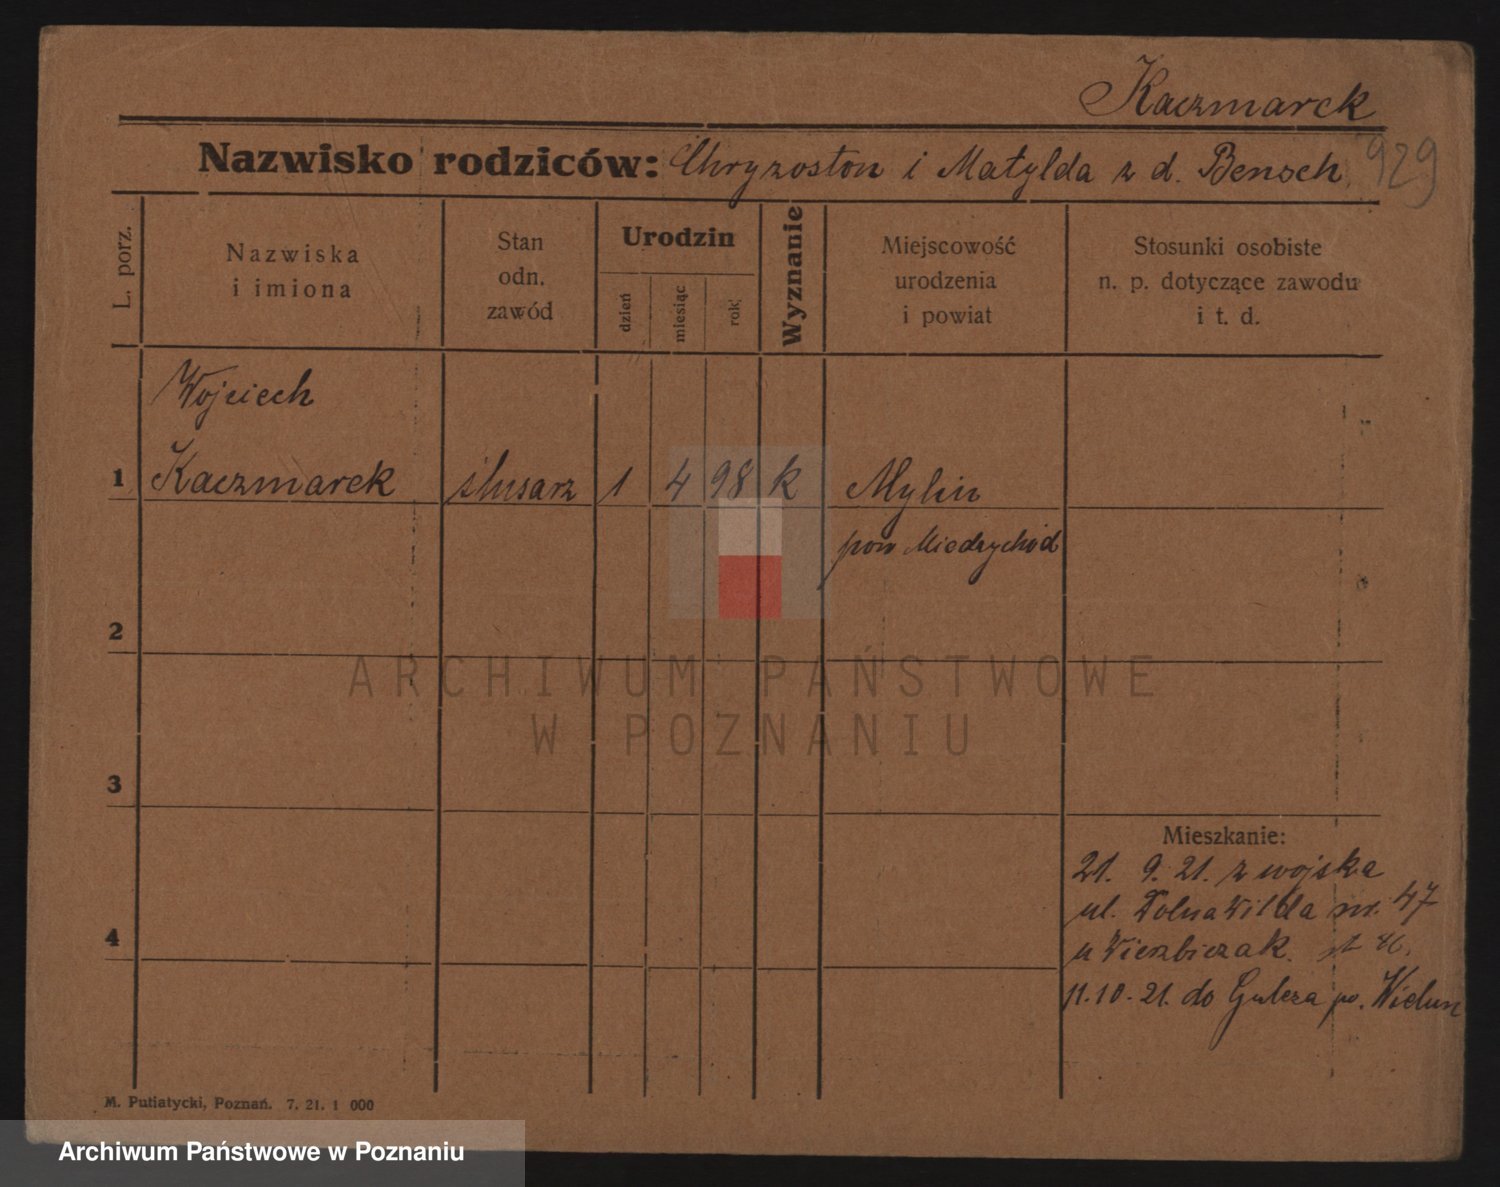 Kaczmarek
929
Nazwisko rodziców: Chryzostom i Matylda z d. Bensch
L. porz.
Nazwiska
i imiona
Stan
odn.
zawód
Urodzin
dzień
miesiąc
rok
Wyznanie
Miejscowość
urodzenia
i powiat
Stosunki osobiste
n. p. dotyczące zawodu
i t. d.
Wojciech
1 Kaczmarek ślusarz 1 4 98 k Mylin
pow Miedzychód
2
3
4
ARCHIWUM PAŃSTWOWE
W POZNANIU
Mieszkanie:
21. 9. 21. z wojska
ul. Dolna Wilda nr. 47
u Wierzbiczak.
11.10.21. do po. Wielun
M. Putiatycki, Poznań. 7. 21. 1 000
Archiwum Państwowe w Poznaniu